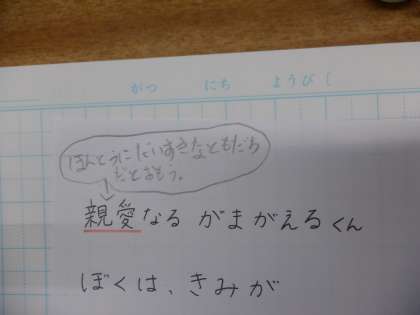 がつ　にち　ようび（
ほんとうに だいすきなともだち
だとおもう。
親愛なる がまがえるくん
ぼくは、きみが